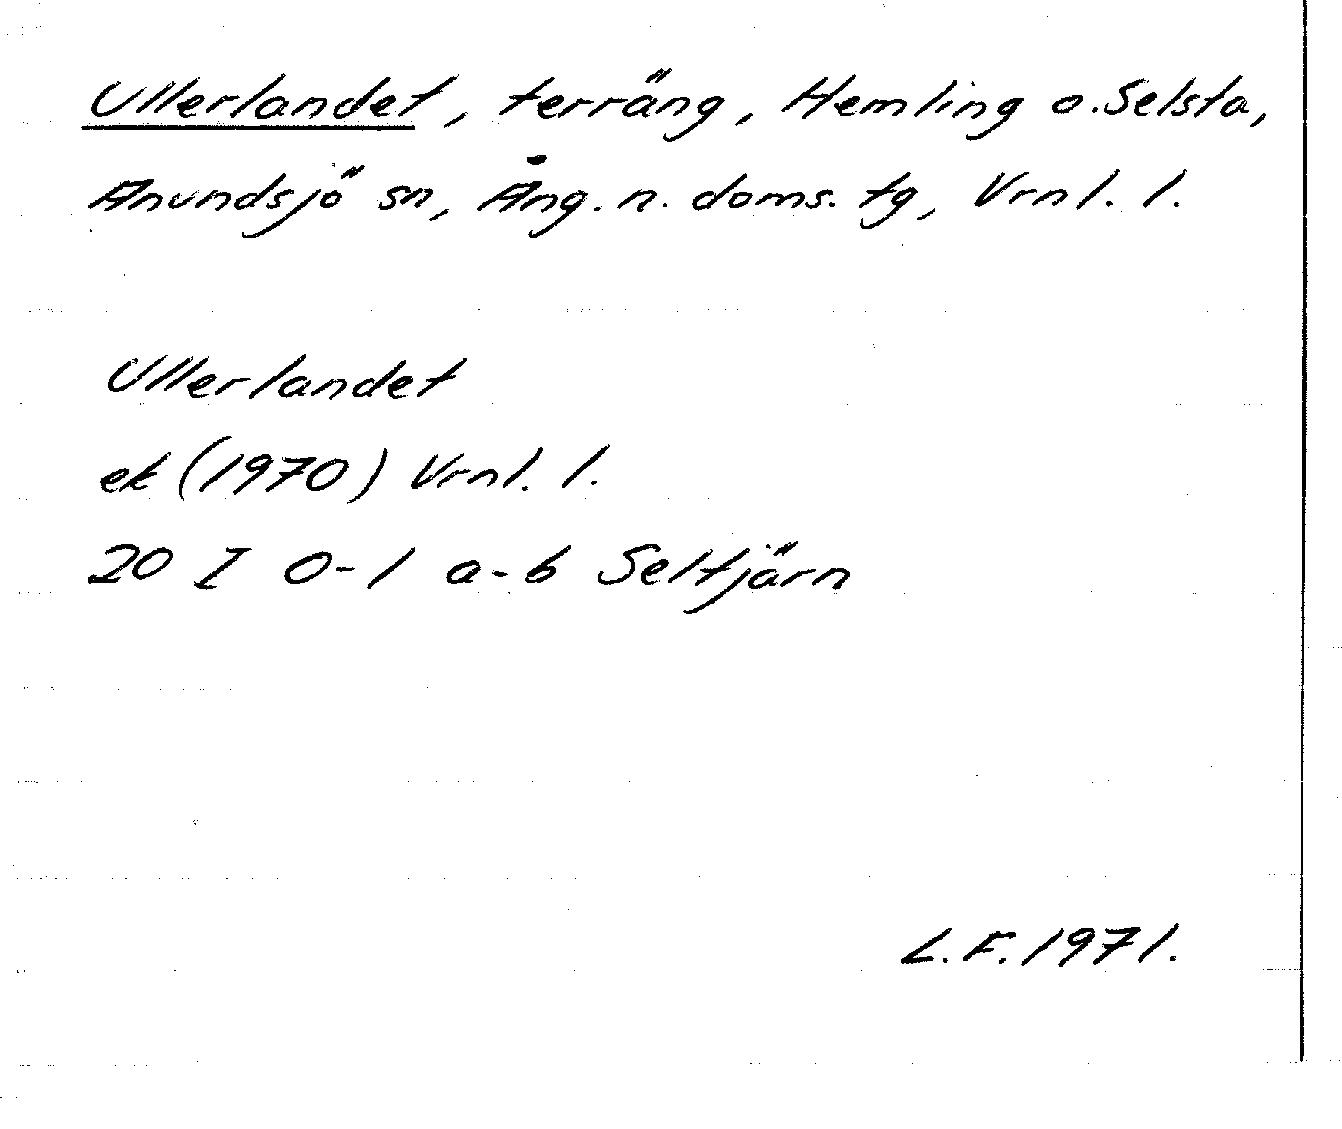 Ullerlandet, terräng, Hemling o. Selsta,
Anundsjö sn, Ång. n. doms. tg, Vrnl. l.
Ullerlandet
ek (1970) Vrnl. l.
20 I 0-1 a-b Seltjärn
L.F. 1971.